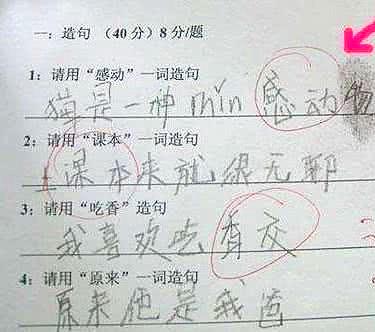 一：造句 （40分）8分/题
1：请用“感动”一词造句
猫是一种 min 感动物
2：请用“课本”一词造句
上课本来就很无聊
3：请用“吃香”造句
我喜欢吃香交
4：请用“原来”一词造句
原来他是我爸